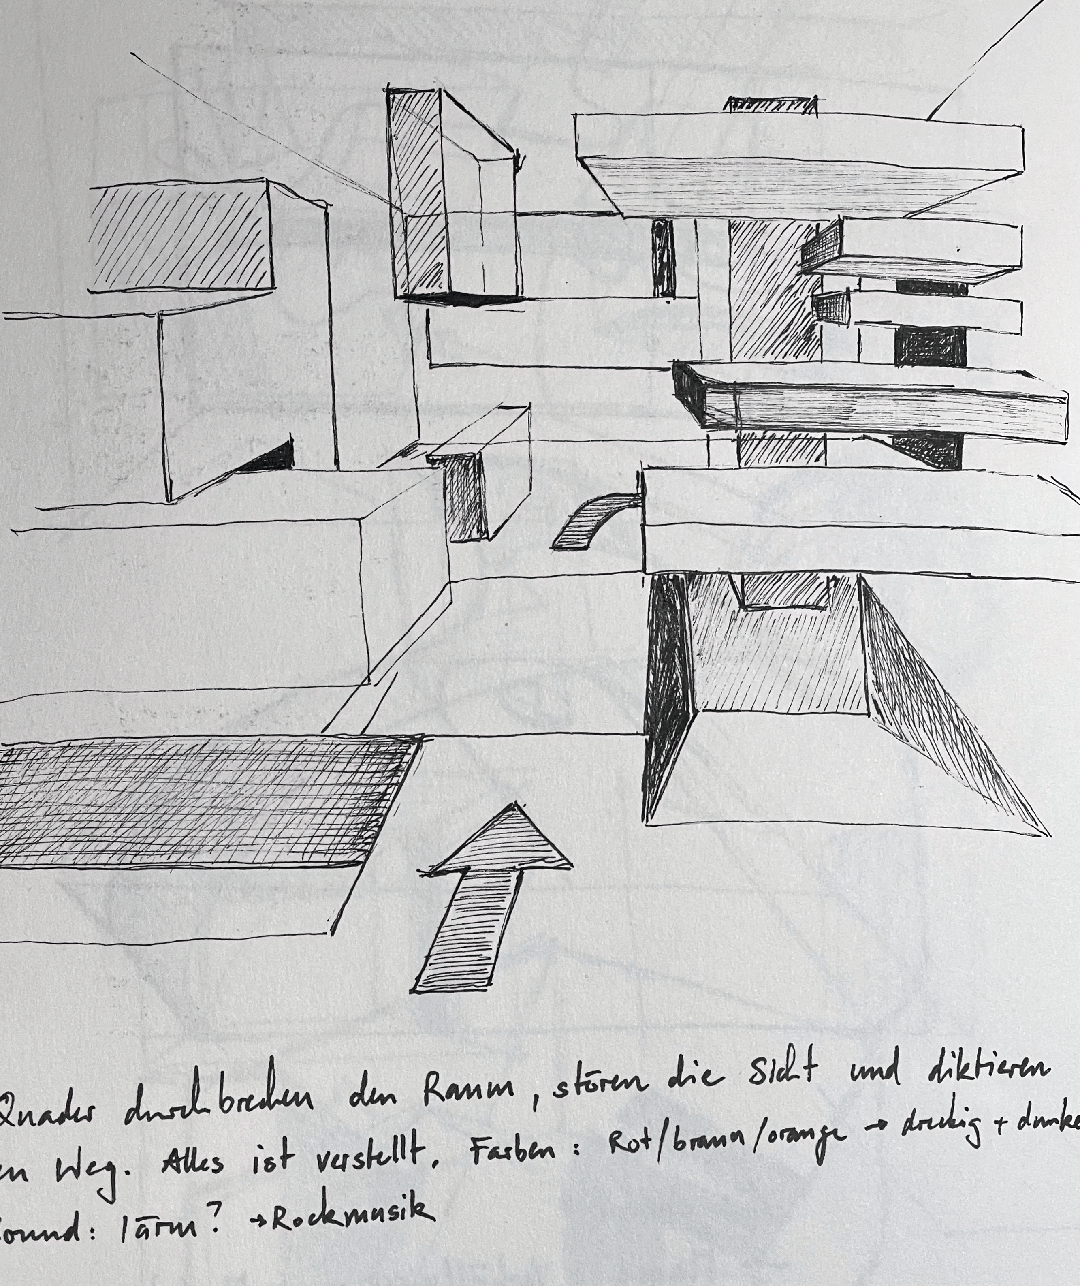 Quader durchbrechen den Raum, stören die Sicht und diktieren
en Weg. Alles ist verstellt. Farben: Rot/braun/orange → dreckig + dunke
ound: lärm? → Rockmusik